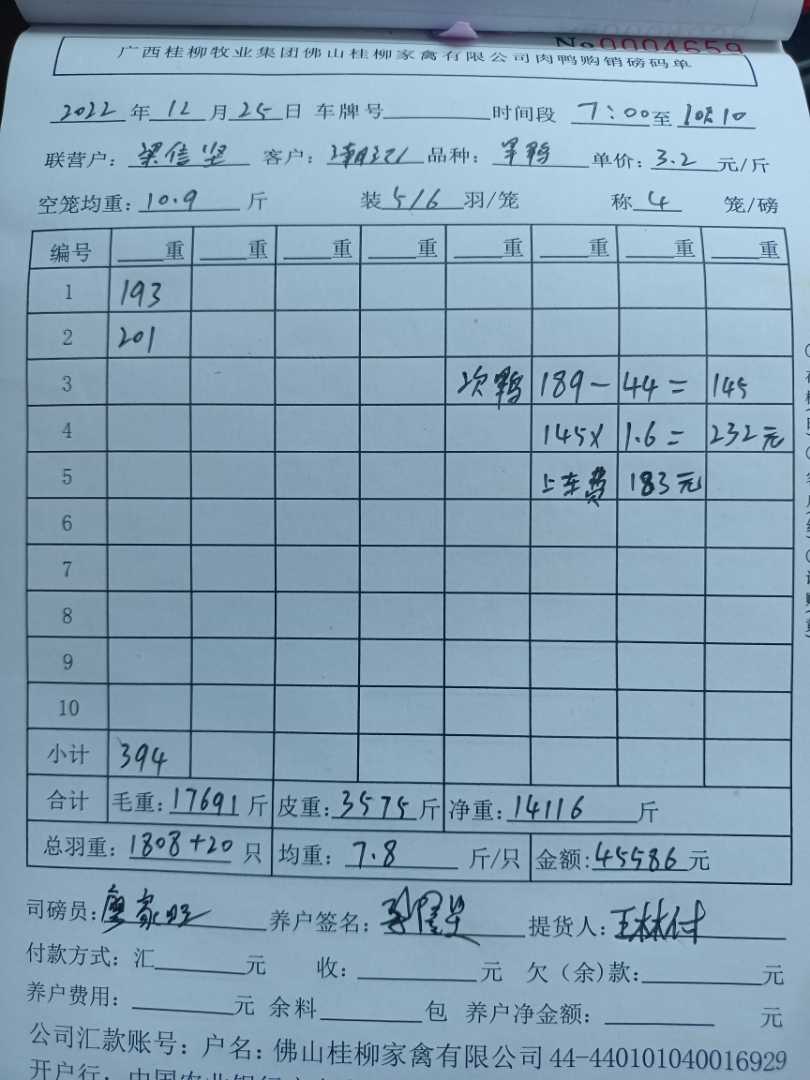 No 0004659
广西桂柳牧业集团佛山桂柳家禽有限公司肉鸭购销磅码单
2022 年 12 月 25 日 车牌号 时间段 7:00 至 10:10
联营户: 梁信坚 客户: 品种: 单价: 3.2 元/斤
空笼均重: 10.9 斤 装 5/6 羽/笼 称 4 笼/磅
编号 重 重 重 重 重 重 重 重
1 193
2 201
3 次鸭 189 - 44 = 145
4 145 X 1.6 = 232元
5 上车费 183元
6
7
8
9
10
小计 394
合计 毛重: 17691 斤 皮重: 3575 斤 净重: 14116 斤
总羽重: 1808+20 只 均重: 7.8 斤/只 金额: 45586 元
司磅员: 养户签名: 提货人: 王林付
付款方式: 汇 元 收: 元 欠(余)款: 元
养户费用: 元 余料 包 养户净金额: 元
公司汇款账号: 户名: 佛山桂柳家禽有限公司 44-440101040016929